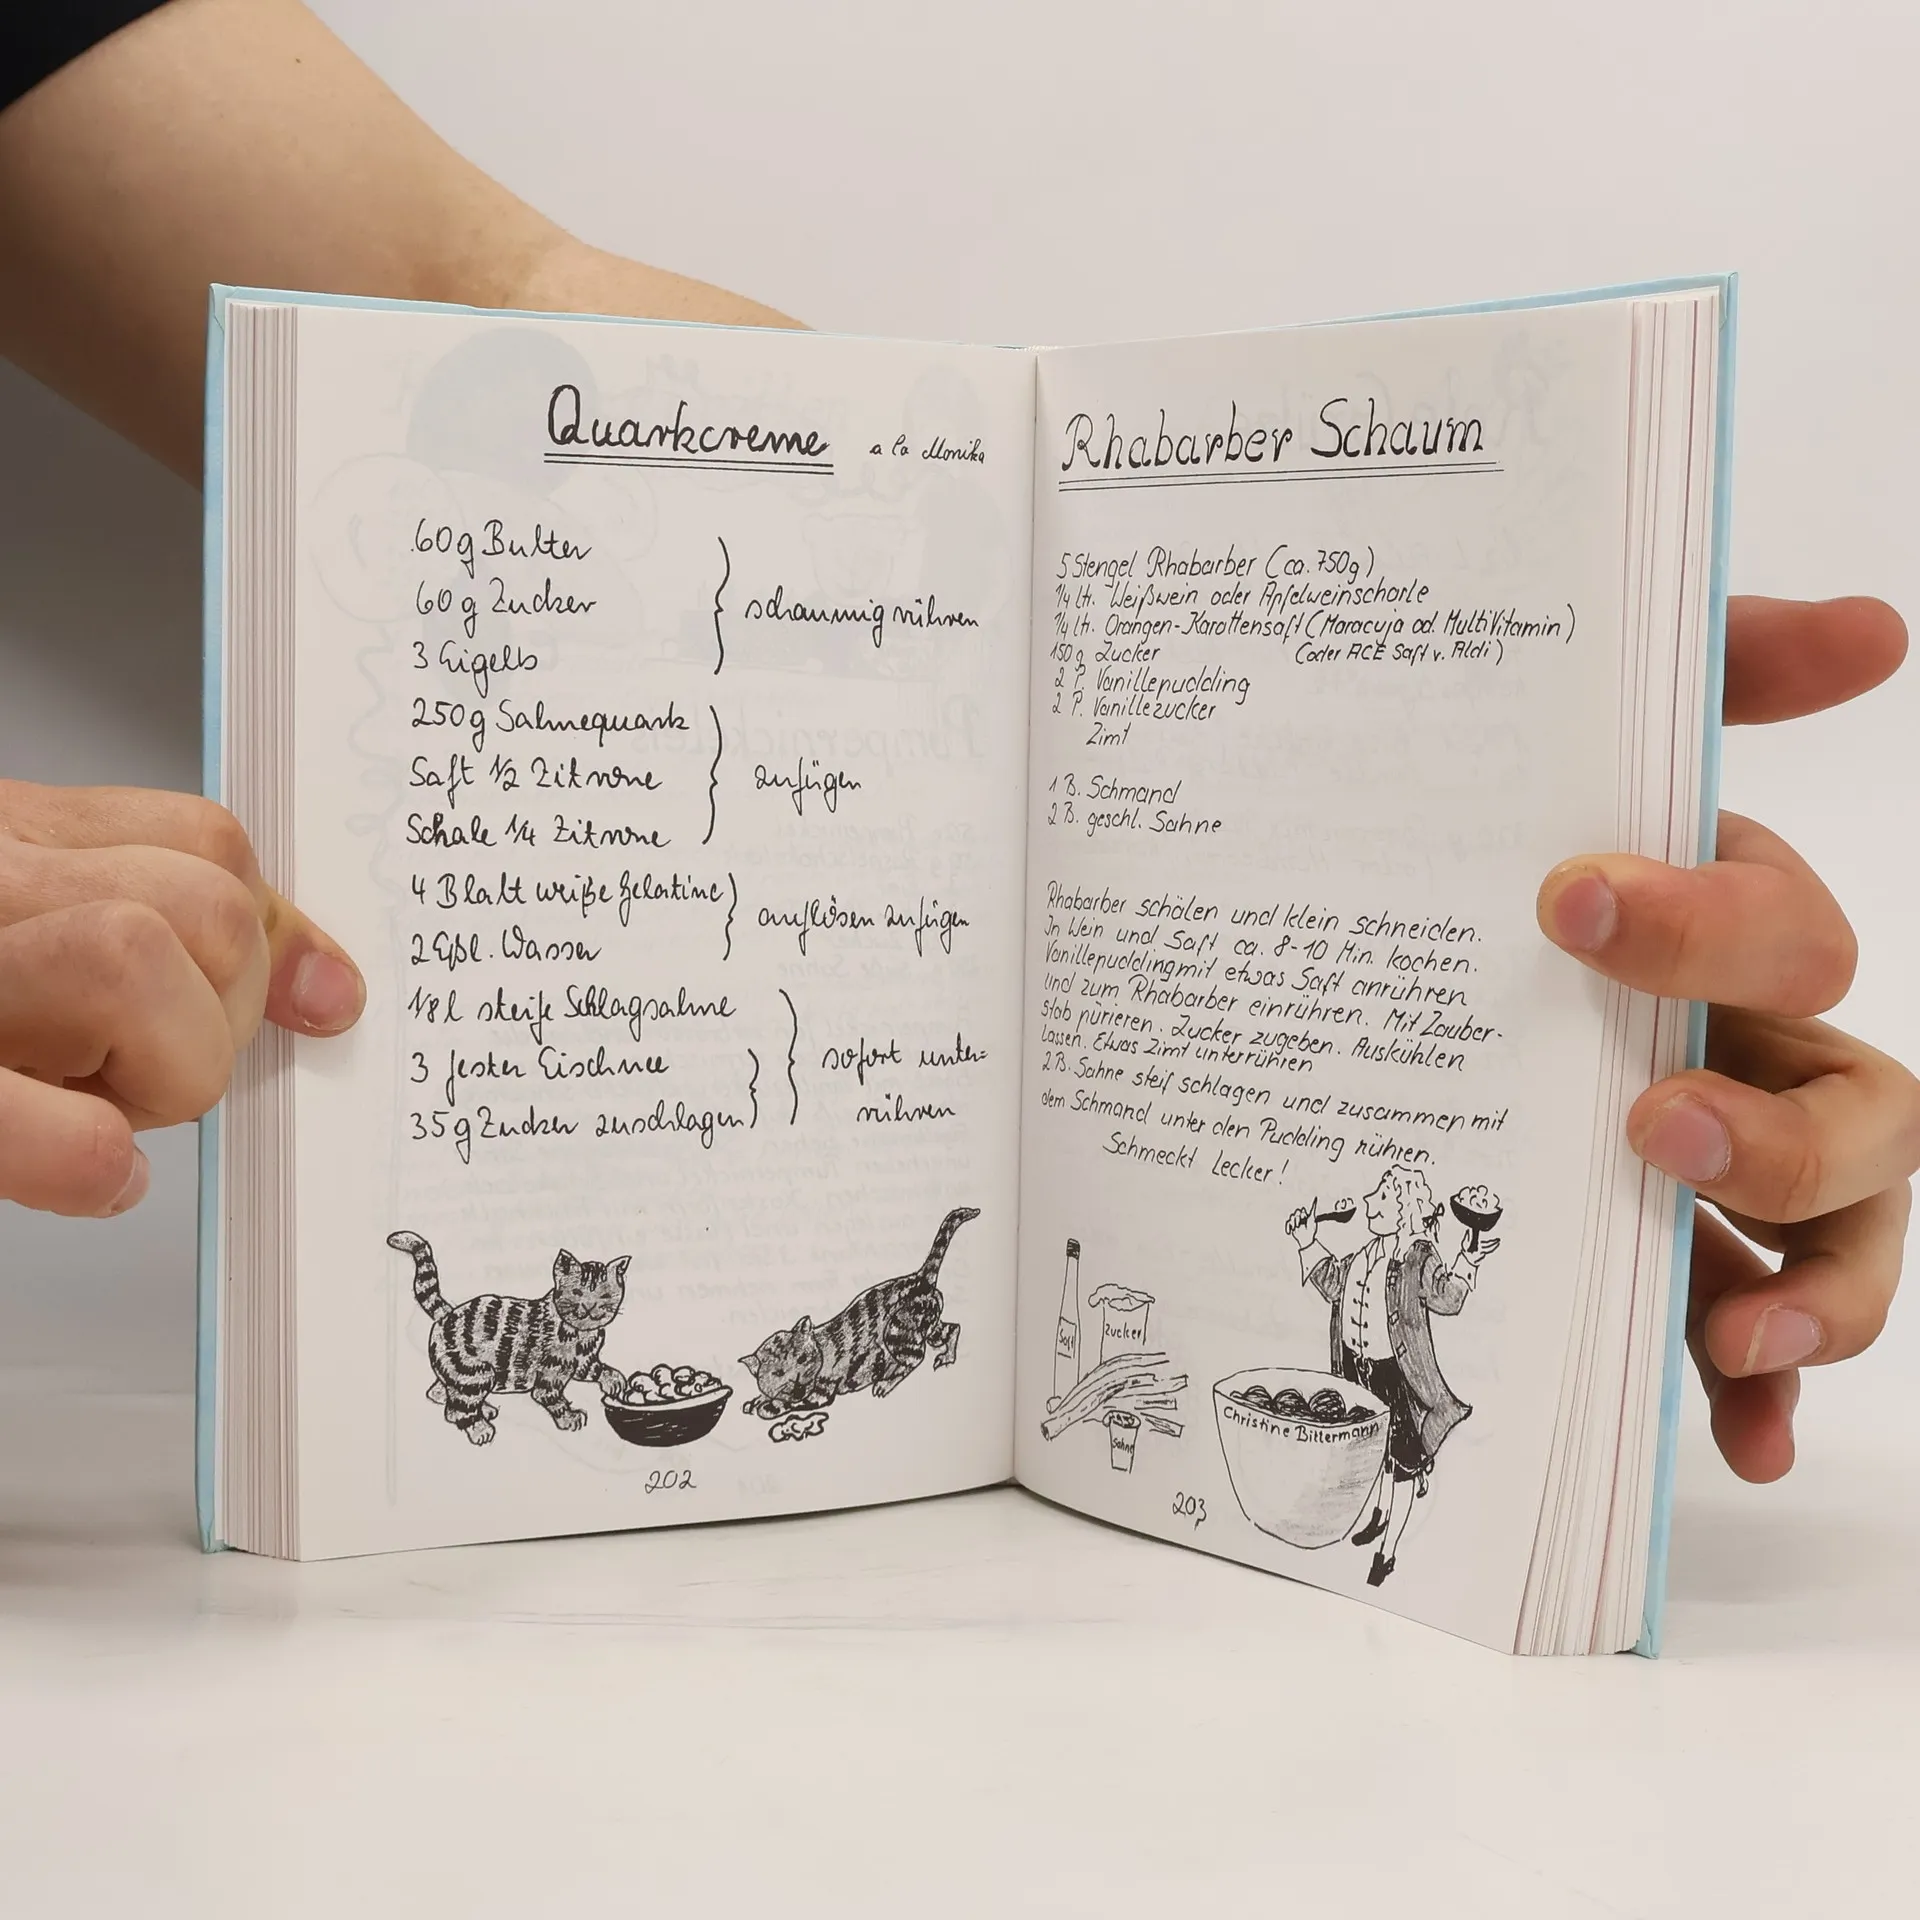 Quarkcreme a la Monika
60g Butter
60g Zucker
3 Eigelb
schaumig rühren
250g Sahnequark
Saft 1/2 Zitrone
Schale 1/4 Zitrone
zufügen
4 Blatt weiße Gelatine
2 Eßl. Wasser
auflösen zufügen
1/8 l steife Schlagsahne
3 fester Eischnee
35g Zucker zuschlagen
sofort unter=
rühren
202
Rhabarber Schaum
5 Stengel Rhabarber (ca. 750g)
1/4 ltr. Weißwein oder Apfelweinschorle
1/4 ltr. Orangen-Karottensaft (Maracuja od. MultiVitamin)
150g Zucker (oder ACE Saft v. Aldi)
2 P. Vanillepudding
2 P. Vanillezucker
Zimt
1 B. Schmand
2 B. geschl. Sahne
Rhabarber schälen und klein schneiden.
In Wein und Saft ca. 8-10 Min. kochen.
Vanillepudding mit etwas Saft anrühren
und zum Rhabarber einrühren. Mit Zauber-
stab pürieren. Zucker zugeben. Auskühlen
lassen. Etwas Zimt unterrühren
2 B. Sahne steif schlagen und zusammen mit
dem Schmand unter den Pudding rühren.
Schmeckt Lecker!
Saft
Zucker
Sahne
Christine Bittermann
203